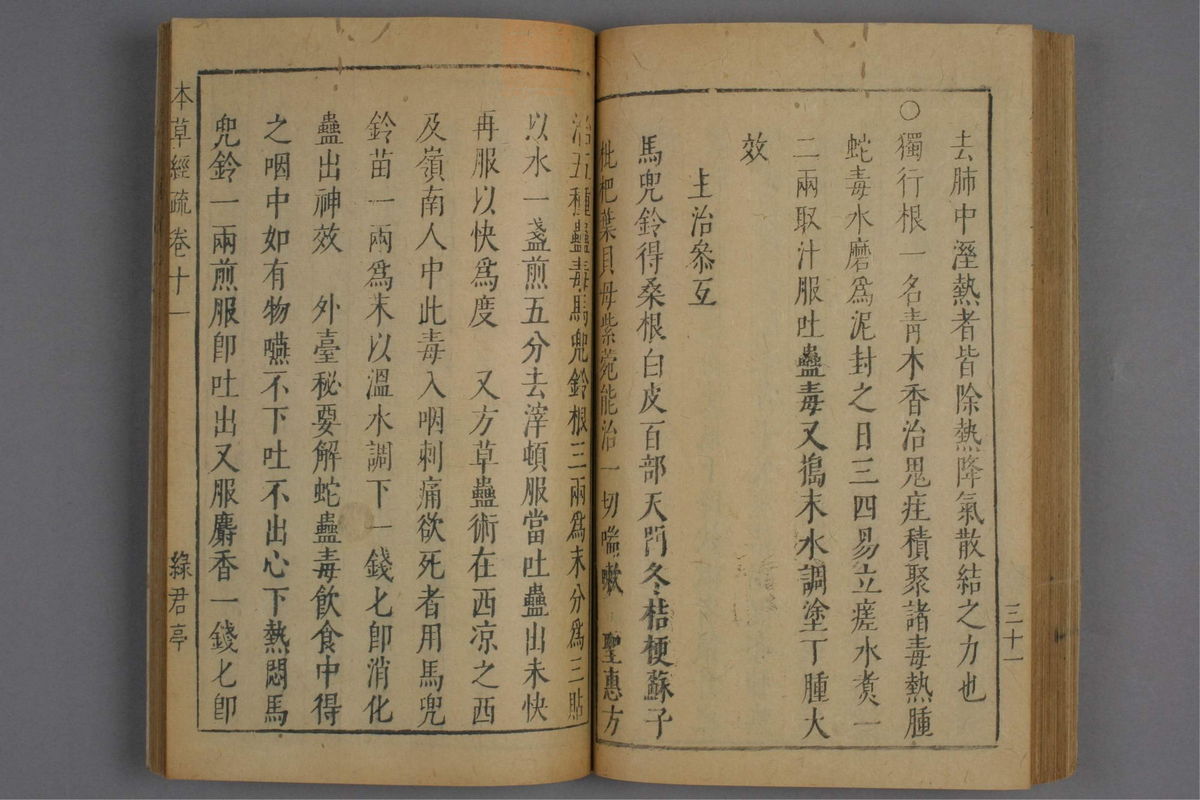 去肺中溼熱者皆除熱降氣散結之力也
○獨行根一名靑木香治鬼疰積聚諸毒熱腫
蛇毒水磨爲泥封之日三四易立瘥水煑一
二兩取汁服吐蠱毒又搗末水調塗丁腫大
效
主治參互
馬兜鈴得桑根白皮百部天門冬桔梗蘇子
枇杷葉貝母紫菀能治一切喘嗽 聖惠方
治五種蠱毒馬兜鈴根三兩爲末分爲三貼
以水一盞煎五分去滓頓服當吐蠱出未快
再服以快爲度 又方草蠱術在西凉之西
及嶺南人中此毒入咽刺痛欲死者用馬兜
鈴苗一兩爲末以溫水調下一錢匕卽消化
蠱出神效 外臺秘要解蛇蠱毒飮食中得
之咽中如有物嚥不下吐不出心下熱悶馬
兜鈴一兩煎服卽吐出又服麝香一錢匕卽
三十一
本草經疏 卷十一 綠君亭